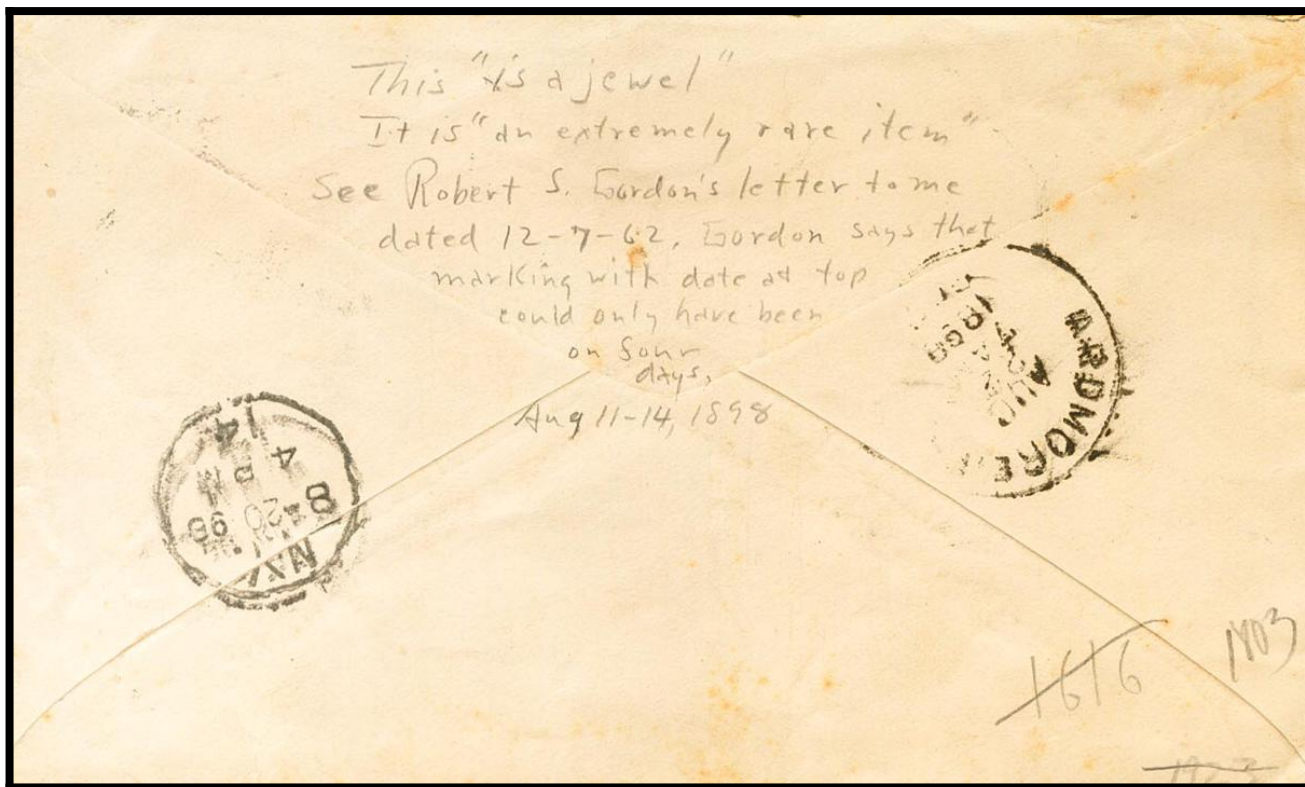 This "is a jewel"
It is "an extremely rare item"
See Robert S. Gordon's letter to me
dated 12-7-62, Gordon says that
marking with date at top
could only have been
on four
days,
Aug 11-14, 1898
ARDMORE
AUG
4
1898
14
4 PM
8 20 98
N.Y.
1616
1803